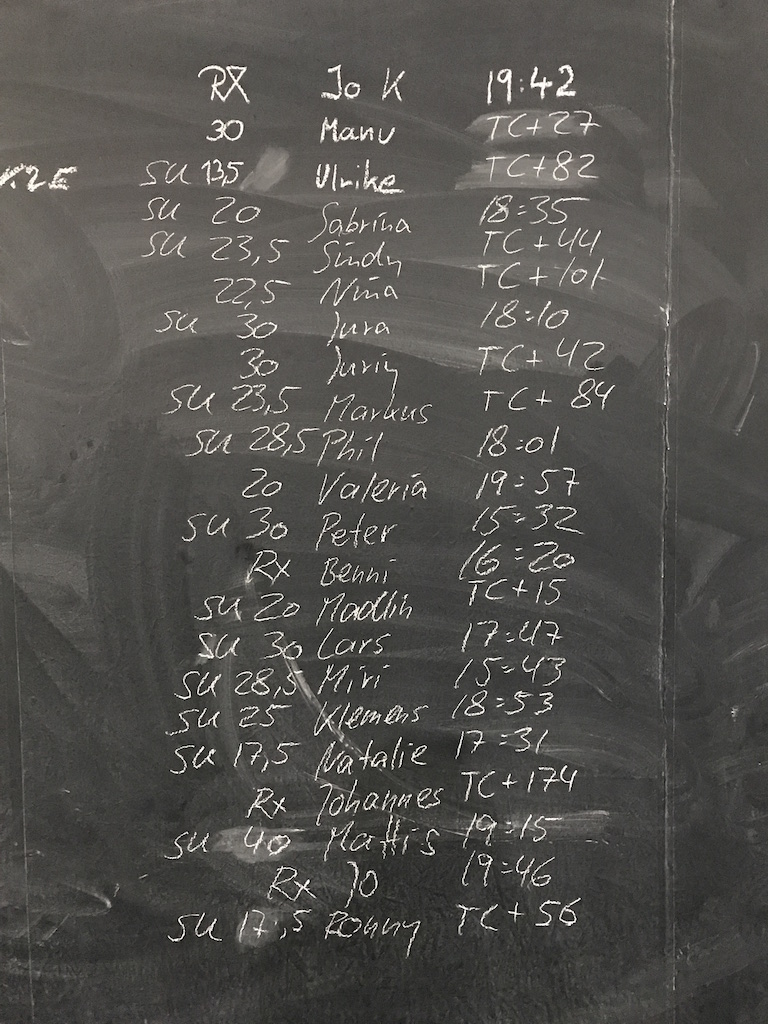 RX Jo K 19:42
30 Manu TC+27
SU 13,5 Ulrike TC+82
SU 20 Sabrina 18:35
SU 23,5 Sindy TC+44
22,5 Nina TC+101
SU 30 Jura 18:10
30 Juriy TC+42
SU 23,5 Markus TC+84
SU 28,5 Phil 18:01
20 Valeria 19:57
SU 30 Peter 15:32
Rx Benni 16:20
SU 20 Madlin TC+15
SU 30 Lars 17:47
SU 28,5 Miri 15:43
SU 25 Klemens 18:53
SU 17,5 Natalie 17:31
Rx Johannes TC+174
SU 40 Mattis 19:15
Rx Jo 19:46
SU 17,5 Ronny TC+56